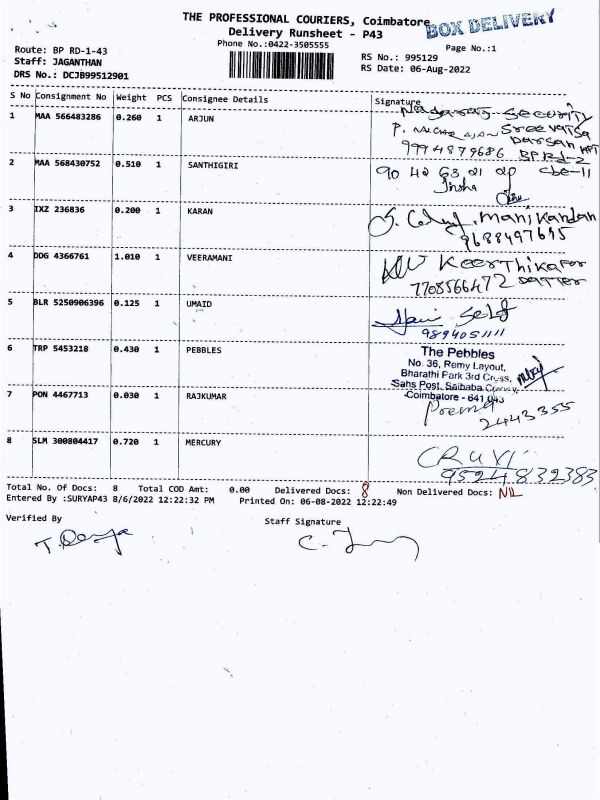 THE PROFESSIONAL COURIERS, Coimbatore
BOX DELIVERY
Delivery Runsheet - P43
Phone No.:0422-3505555
Page No.:1
Route: BP RD-1-43
Staff: JAGANTHAN
DRS No.: DCJB99512901
RS No.: 995129
RS Date: 06-Aug-2022
S No Consignment No Weight PCS Consignee Details Signature
1 MAA 566483286 0.260 1 ARJUN Nagaraj Security
P. Sreevatsa
Darsan APT
9994879686 BPRd-2
2 MAA 568430752 0.510 1 SANTHIGIRI 90 42 63 21 cbe-11
Jisha
3 IXZ 236836 0.200 1 KARAN Manikandan
9688497695
4 DDG 4366761 1.010 1 VEERAMANI Keerthika
7708566472
5 BLR 5250906396 0.125 1 UMAID Self
9894051111
6 TRP 5453218 0.430 1 PEBBLES The Pebbles
No. 36, Remy Layout,
Bharathi Park 3rd Cross,
Sahs Post, Saibaba
Coimbatore - 641 043
7 PON 4467713 0.030 1 RAJKUMAR Prema
2443355
8 SLM 300804417 0.720 1 MERCURY CRUVI
9524832383
Total No. Of Docs: 8 Total COD Amt: 0.00 Delivered Docs: 8 Non Delivered Docs: NIL
Entered By :SURYAP43 8/6/2022 12:22:32 PM Printed On: 06-08-2022 12:22:49
Verified By Staff Signature